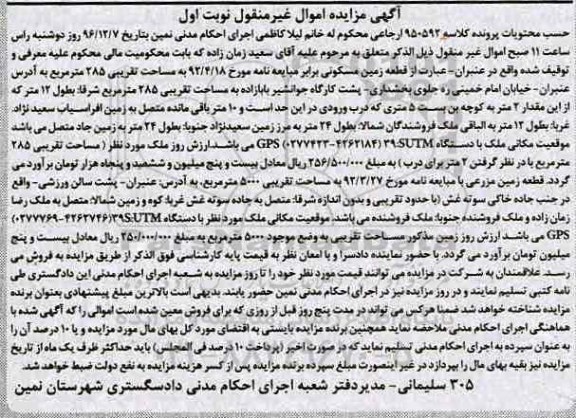 آگهی مزایده اموال غیرمنقول نوبت اول
حسب محتویات پرونده کلاسه ۹۵۰۵۹۲ ارجاعی محکوم له خانم لیلا کاظمی اجرای احکام مدنی نمین بتاریخ ۹۶/۱۲/۷ روز دوشنبه راس
ساعت ۱۱ صبح اموال غیر منقول ذیل الذکر متعلق به مرحوم علیه آقای سعید زمان زاده که بابت محکومیت مالی محکوم علیه معرفی و
توقیف شده واقع در عنبران- عبارت از قطعه زمین مسکونی برابر مبایعه نامه مورخ ۹۲/۴/۱۸ به مساحت تقریبی ۲۸۵ مترمربع به آدرس
عنبران- خیابان امام خمینی ره جلوی بخشداری- پشت کارگاه جوانشیر بابازاده به مساحت تقریبی ۲۸۵ مترمربع شرقا: بطول ۱۲ متر که
از این مقدار ۲ متر به کوچه بن بست ۵ متری که درب ورودی در این حد است و ۱۰ متر باقی مانده متصل به زمین افراسیاب سعید نژاد.
غربا: بطول ۱۲ متر به الباقی ملک فروشندگان شمالا: بطول ۲۴ متر به مرز زمین سعیدنژاد جنوبا: بطول ۲۴ متر به زمین جاد متصل می باشد
موقعیت مکانی ملک با دستگاه GPS (۰۲۷۷۴۲۳-۴۲۶۲۱۸۴) ۳۹:S:UTM می باشد.ارزش روز ملک مورد نظر ( مساحت تقریبی ۲۸۵
مترمربع با در نظر گرفتن ۲ متر برای درب ) به مبلغ ۲۵۶/۵۰۰/۰۰۰ ریال معادل بیست و پنج میلیون و ششصد و پنجاه هزار تومان برآورد می
گردد. قطعه زمین مزرعی با مبایعه نامه مورخ ۹۲/۳/۲۷ به مساحت تقریبی ۵۰۰۰ مترمربع، به آدرس: عنبران- پشت سالن ورزشی- واقع
در جنب جاده خاکی سوته غش (با حدود تقریبی و بدون اندازه شرقا: متصل به جاده سوته غش غربا: کوه و زمین شمالا: متصل به ملک رضا
زمان زاده و ملک فروشنده جنوبا: ملک فروشنده می باشد. موقعیت مکانی ملک موردنظر با دستگاه ۳۹S:UTM(۰۲۷۷۷۶۹-۴۲۶۲۷۴۶)
GPS می باشد ارزش روز زمین مذکور بمساحت تقریبی به وضع موجود ۵۰۰۰ مترمربع به مبلغ ۲۵۰/۰۰۰/۰۰۰ ریال معادل بیست و پنج
میلیون تومان برآورد می گردد. با حضور نماینده دادسرا و با امعان نظر به قیمت پایه کارشناسی فوق الذکر از طریق مزایده به فروش می
رسد. علاقمندان به شرکت در مزایده می توانند قیمت مورد نظر خود را تا روز مزایده به شعبه اجرای احکام مدنی این دادگستری طی
نامه کتبی تسلیم نمایند و در روز مزایده نیز در اجرای احکام مدنی نمین حضور یابند. بدیهی است بالاترین مبلغ پیشنهادی بعنوان برنده
مزایده شناخته خواهد شد ضمنا هرکس می تواند در مدت پنج روز قبل از روزی که برای فروش معین شده است اموالی را که آگهی شده با
هماهنگی اجرای احکام مدنی ملاحضه نماید همچنین برنده مزایده بایستی به اقتضای مورد کل بهای مال مورد مزایده و یا ۱۰ درصد آن را
به عنوان سپرده به اجرای احکام مدنی تسلیم نماید که در صورت اخیر (پرداخت ۱۰ درصد فی المجلس) باید حداکثر ظرف یک ماه از تاریخ
مزایده نیز بقیه بهای مال را بپردازد در غیر اینصورت مبلغ سپرده برنده مزایده پس از کسر هزینه مزایده به نفع دولت ضبط خواهد شد.
۳۰۵ سلیمانی- مدیردفتر شعبه اجرای احکام مدنی دادگستری شهرستان نمین